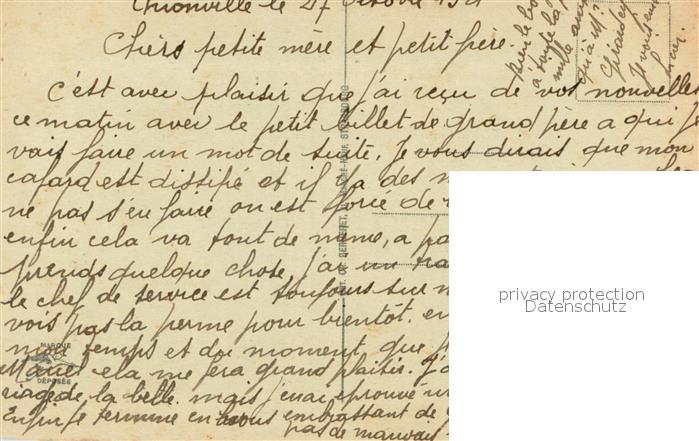 Thionville le 27
Chers petite mère et petit frère.
C'est avec plaisir que j'ai reçu de vos nouvelles
ce matin avec le petit billet de grand père a qui je
vais faire un mot de suite. Je vous dirais que mon
cafard est dissipé et il y a des
ne pas s'en faire on est forcé de
enfin cela va tout de meme, a pa
prends quelque chose, j'ai un
le chef de service est toujours sur
vois pas la perme pour bientot. en
mon temps et du moment que
cela me fera grand plaisir. J'a
riage de la belle. mais j'en ai eprouvé un
Enfin je termine en vous embrassant de
pas de mauvais
MARQUE
DÉPOSÉE
privacy protection
Datenschutz